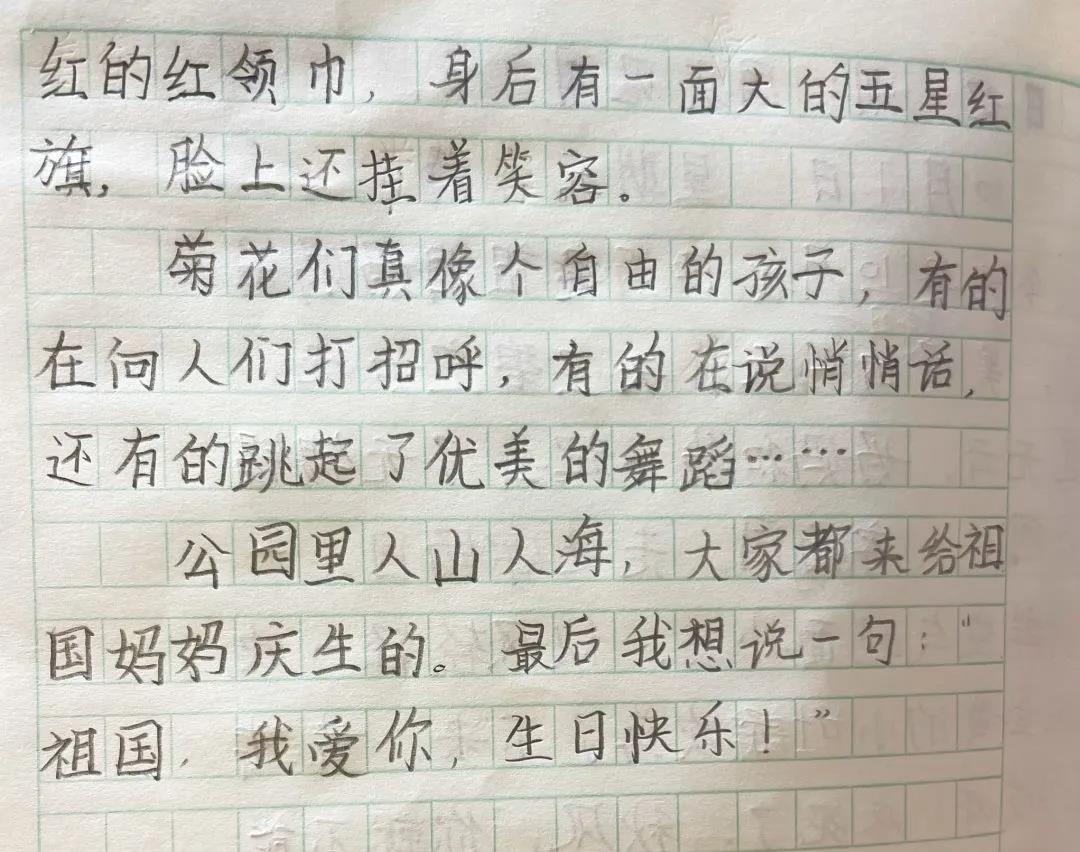 红的红领巾，身后有一面大的五星红
旗，脸上还挂着笑容。
菊花们真像个自由的孩子，有的
在向人们打招呼，有的在说悄悄话，
还有的跳起了优美的舞蹈……
公园里人山人海，大家都来给祖
国妈妈庆生的。最后我想说一句：“
祖国，我爱你，生日快乐！”